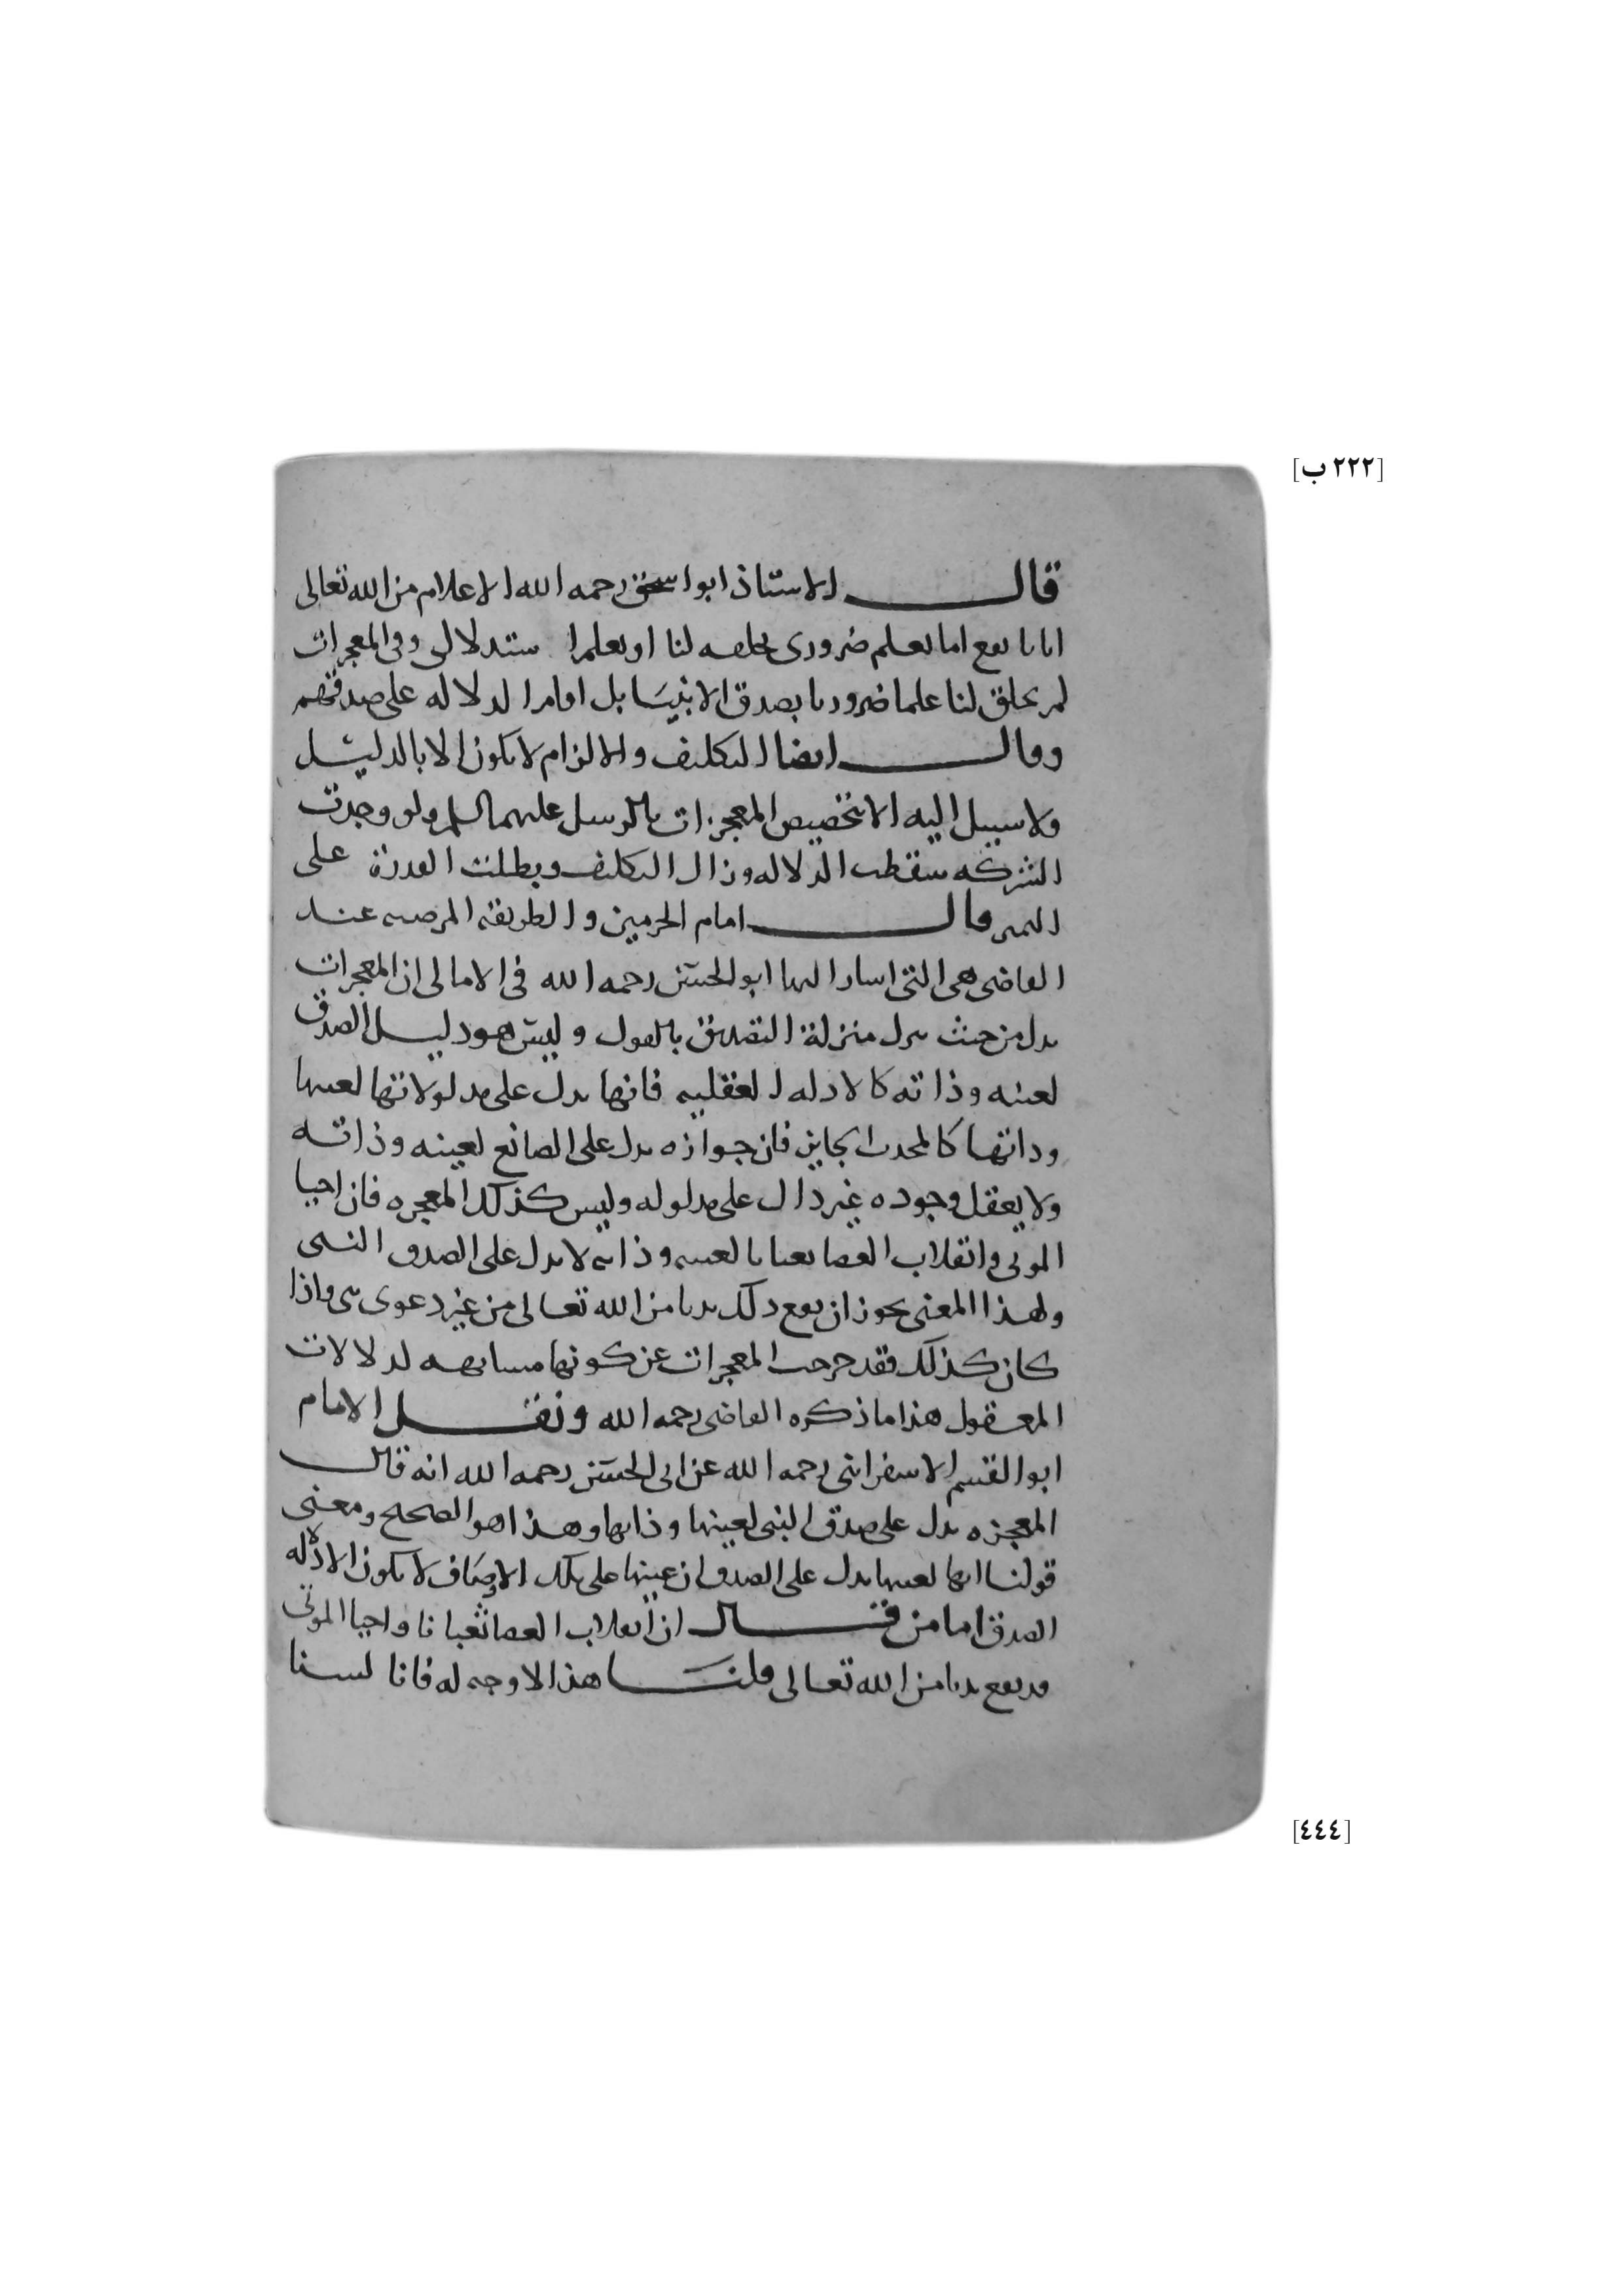 [٢٢٢ ب]
قال الاستاذ ابو اسحق رحمه الله الاعلام من الله تعالى
ايانا يقع اما بعلم ضروري يخلقه لنا او بعلم استدلالي وفي المعجزات
لم يخلق لنا علما ضروريا بصدق الانبيا بل اقام الدلاله على صدقهم
وقال ايضا التكليف والالزام لا يكون الا بالدليل
ولا سبيل اليه الا بتخصيص المعجزات بالرسل عليهم السلم ولو وجدت
الشركه سقطت الدلاله وزال التكليف وبطلت القدرة على
التميز وقال امام الحرمين والطريقة المرضيه عند
القاضي هي التي اشار اليها ابو الحسن رحمه الله في الامالي ان المعجزات
تدل من حيث تنزل منزلة التصديق بالقول وليس هو دليل الصدق
لعينه وذاته كالادله العقليه فانها تدل على مدلولاتها لعينها
وذاتها كالمحدث الجايز فان جوازه يدل على الصانع لعينه وذاته
ولا يعقل وجوده غير دال على مدلوله وليس كذلك المعجزه فان احيا
الموتى وانقلاب العصا ثعبانا لعينه وذاته لا يدل على الصدق النبي
ولهذا المعنى يجوز ان يقع ذلك بديا من الله تعالى من غير دعوى نبي واذا
كان كذلك فقد خرجت المعجزات عن كونها مشابهه لدلالات
المعقول هذا ما ذكره القاضي رحمه الله ونقل الامام
ابو القسم الاسفرايني رحمه الله عن ابي الحسن رحمه الله انه قال
المعجزه تدل على صدق النبي لعينها وذاتها وهذا هو الصحيح ومعنى
قولنا انها لعينها تدل على الصدق ان عينها على تلك الاوصاف لا يكون الا دلاله
الصدق اما من قال ان انقلاب العصا ثعبانا واحيا الموتى
قد يقع بديا من الله تعالى قلنا هذا لا وجه له فانا لسنا
[٤٤٤]